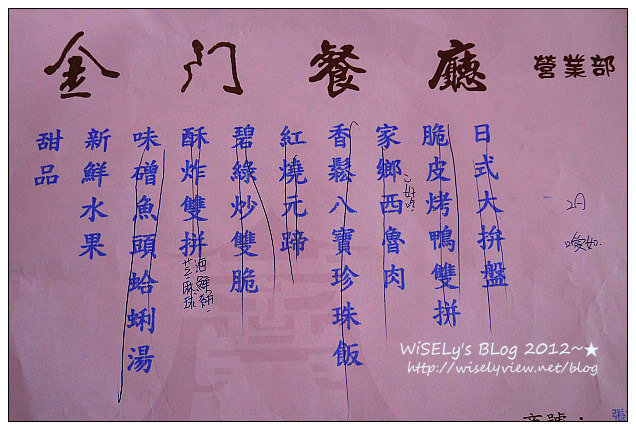 金门餐廳 營業部
日式大拚盤
脆皮烤鴨雙拼
家鄉西魯肉
香鬆八寶珍珠飯
紅燒元蹄
碧綠炒雙脆
酥炸雙拼
海鮮餅
芝麻球
味磳魚頭蛤蜊湯
新鮮水果
甜品
WiSELy's BLog 2012~★
http://wiselyview.net/blog